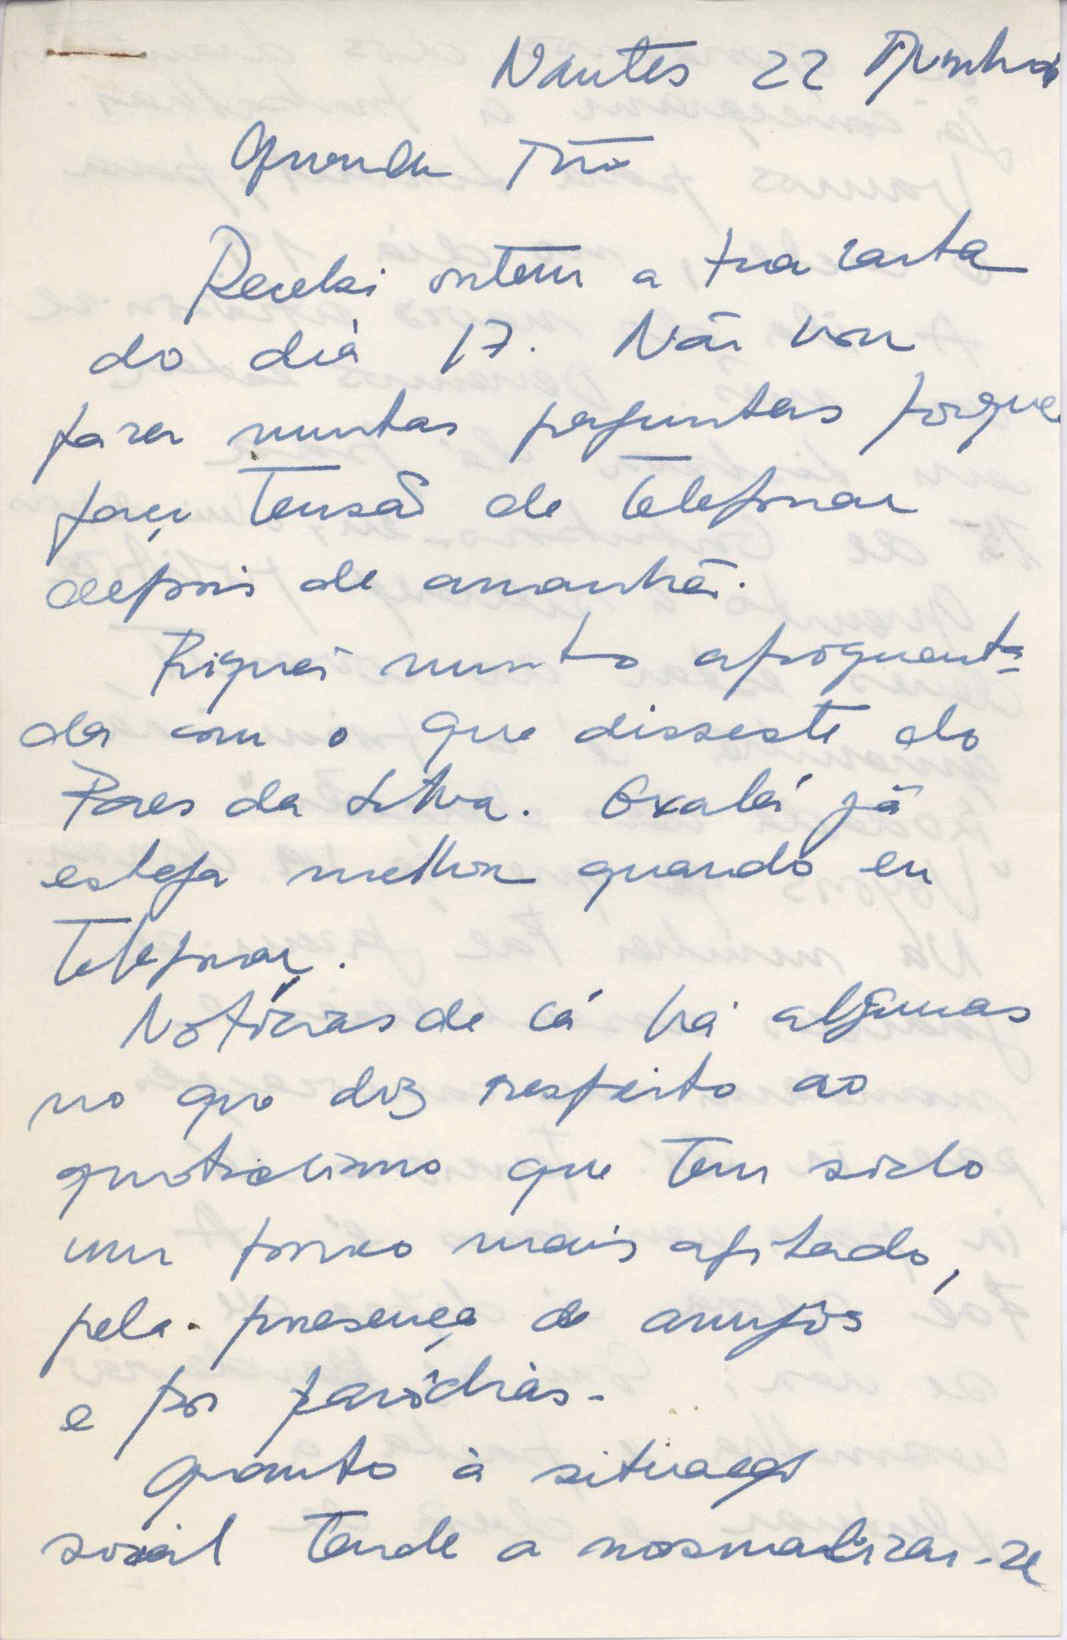 Nantes 22 Junho
Grande Tró
Recebi ontem a tua carta
do dia 17. Não vou
fazer muntas perguntas porque
faço tensão de telefonar
depois de amanhã.
Fiquei munto afroguenta-
da com o que disseste do
Paes da Silva. Oxalá já
esteja melhor quando eu
telefonar.
Notícias de cá há algumas
no que diz respeito ao
quotidiano que tem sido
um pouco mais agitado,
pela presença de amigos
e por paródias.
Quanto à situação
social tende a normalizar-se